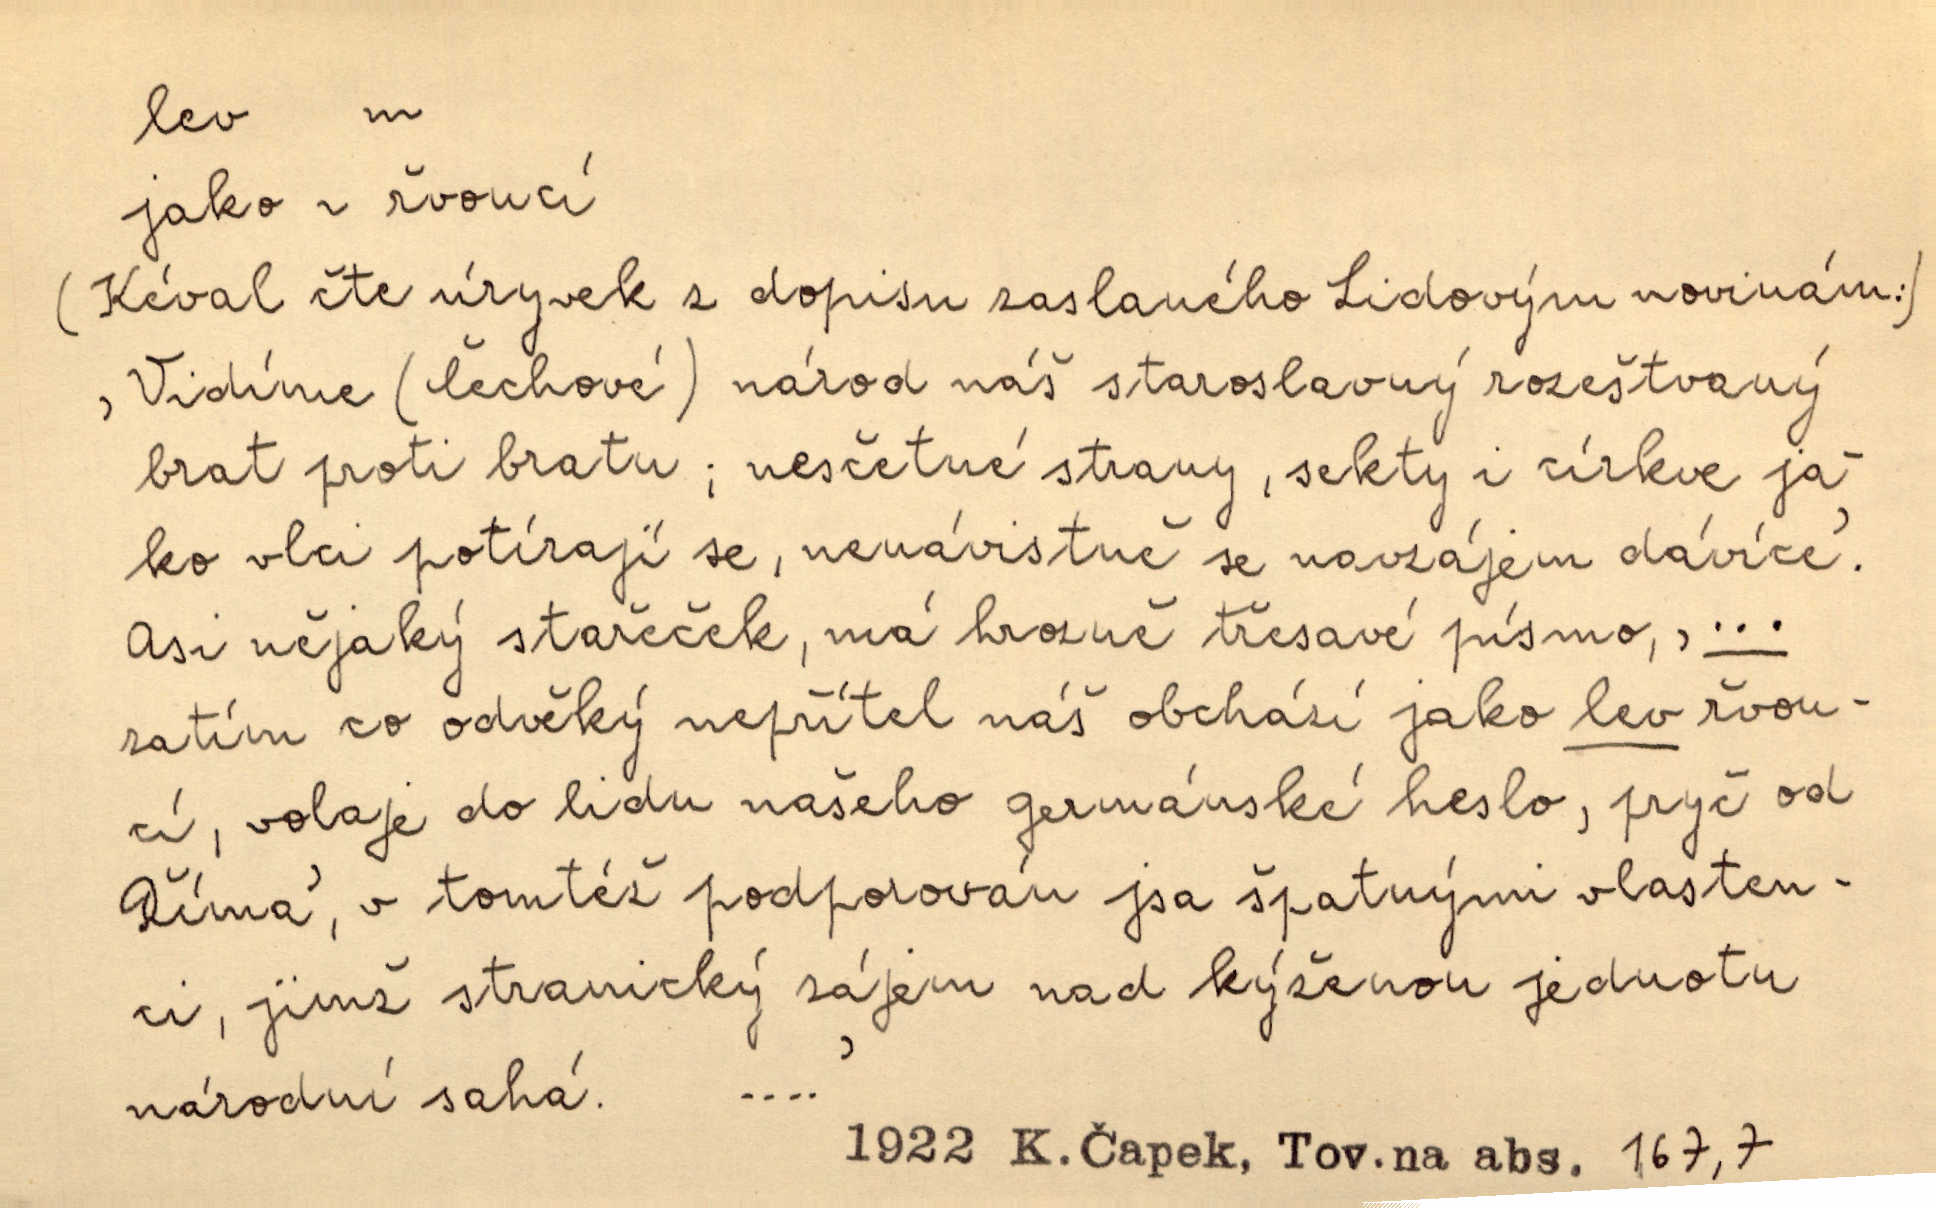 lev m
jako ~ řvoucí
(Kéval čte úryvek z dopisu zaslaného Lidovým novinám:)
‚Vidíme (Čechové) národ náš staroslavný rozeštvaný
brat proti bratu; nesčetné strany, sekty i církve ja-
ko vlci potírají se, nenávistně se navzájem dávíce'.
Asi nějaký stařeček, má hrozně třesavé písmo, ‚...
zatím co odvěký nepřítel náš obchází jako lev řvou-
cí, volaje do lidu našeho germánské heslo ‚pryč od
Říma', v tomtéž podporován jsa špatnými vlasten-
ci, jimž stranický zájem nad kýženou jednotu
národní sahá. ....'
1922 K.Čapek, Tov.na abs. 167,7